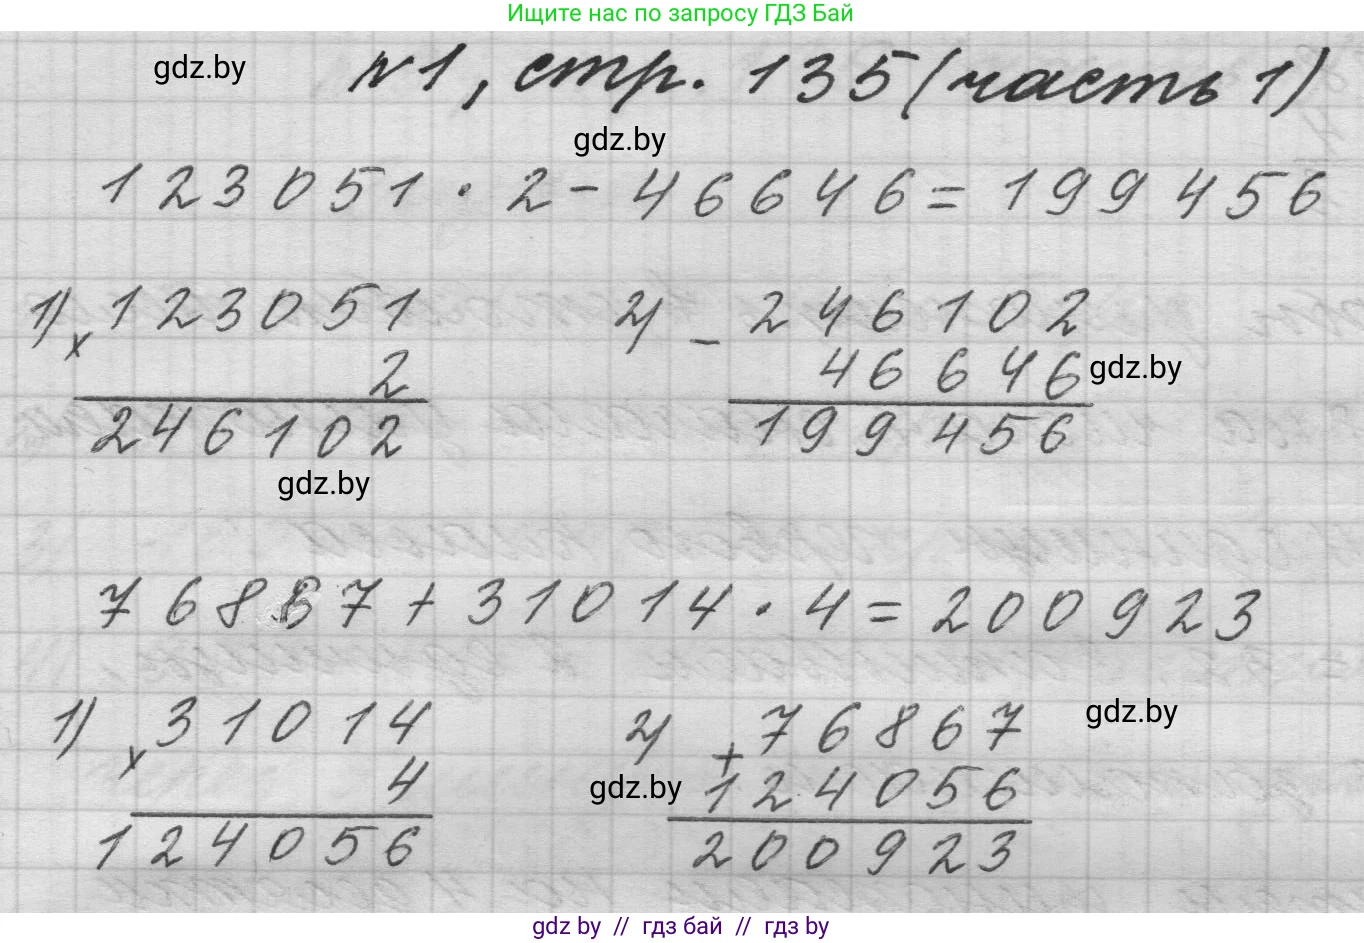 Ищите нас по запросу ГДЗ Бай
gdz.by
№1, стр. 135 (часть 1)
gdz.by
123051 · 2 - 46646 = 199456
1) × 123051
2
246102
2) - 246102
46646
199456
gdz.by
gdz.by
76887 + 31014 · 4 = 200923
1) × 31014
4
124056
2) + 76867
124056
200923
gdz.by
gdz.by
gdz by // гдз бай // gdz by